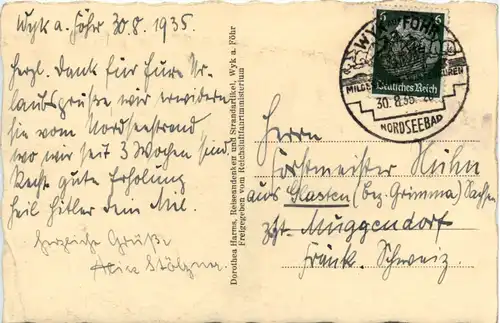 Wyk a. Föhr, 30.8.1935
Herzl. Dank für Eure Ur-
laubsgrüße wir erwidern
sie vom Nordseestrand
wo wir seit 3 Wochen sind
Recht gute Erholung
Heil Hitler Dein
Herzliche Grüße
Dorothea Harms, Reiseandenken und Strandartikel, Wyk a. Föhr
Freigegeben vom Reichsluftfahrtministerium
6 6
Deutsches Reich
WYK FÖHR
30. 8. 35
NORDSEEBAD
Herrn
Forstmeister Hühn
aus Glasten (Bez. Grimma) Sachsen
zzt. Muggendorf
Fränk. Schweiz